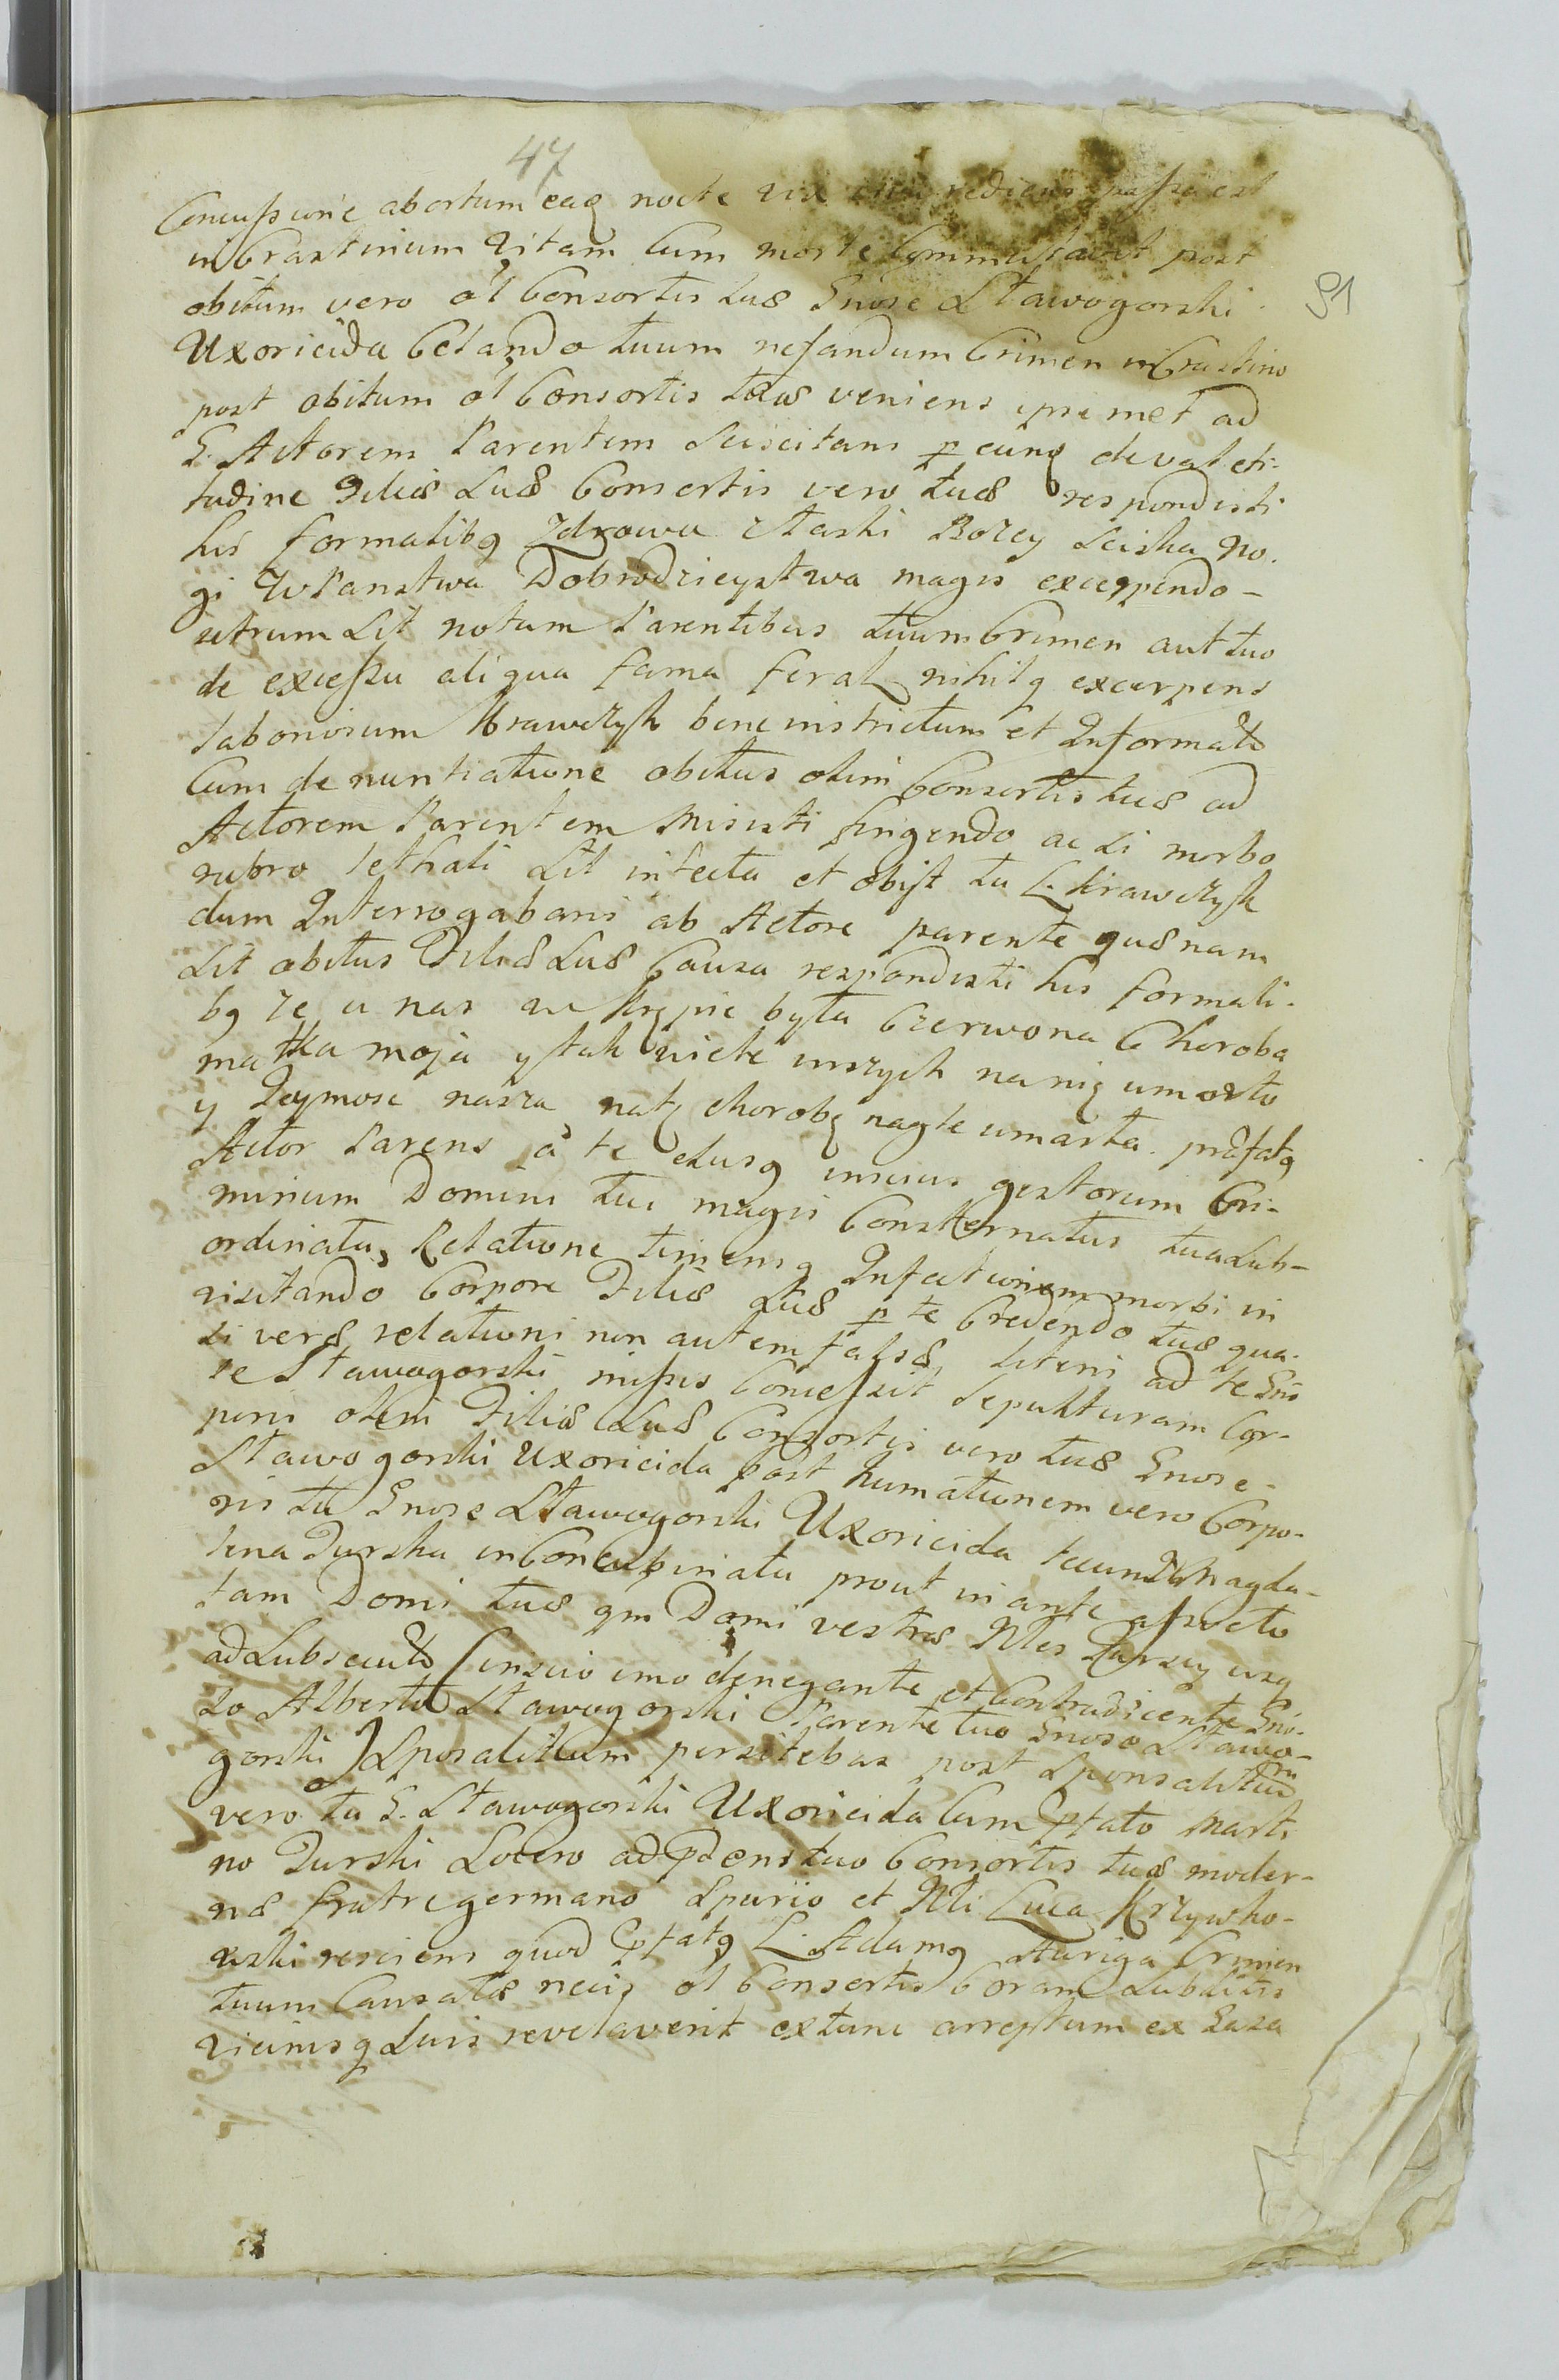 47
Concussione abortum eaq nocte vix rediens passa est
in Crastinum vitam Cum morte Commutavit post
91
obitum vero ol Consortis tuæ Gnose Stawogorski
Uxoricida Celando tuum nefandum Crimen in Crastino
post obitum ol Consortis tuæ veniens ipsemet ad
G. Actorem Parentem Sciscitans p eunq de valeti-
tudine Filiæ Suæ Consortis vero tuæ respondisti
his formalibq zdrowa z łaski Bozey sciska no-
gi WPanstwa Dobrodzieystwa magis excerpendo-
utrum sit notum Parentibus tuum Crimen aut tuo
de excessu aliqua fama ferat nihilq excerpens
Laboriosum Krawczyk bene instrictum et Informatū
Cum denuntiatione obitus olim Consortis tuæ ad
Actorem Parentem misisti fingendo ac si morbo
rubro lethali sit infecta et obijt tu L. Krawczyk
dum Interrogabaris ab Actore parente quænam
sit obitus Filiæ Suæ Causa respondisti his formali-
bq ze u nas w Krępie była Czerwona Choroba
matka moja y tak wiele inszych na nię umarło
y Jeymosc nasza na tę chorobę nagle umarła. præfatq
Actor Parens à te elusq inscius gestorum Cri-
minum Domini tui magis Consternatus tua Sub-
ordinata Relatione timensq Infectionem morbi in
visitando Corpore Filiæ Suæ p te Credendo tuæ qua-
si veræ relationi non autem falsæ, literis ad te Gno
se Stawogorski missis Concessit Sepulturam Cor-
poris olim Filiæ Suæ Consortis vero tuæ Gnose-
Stawogorski Uxoricida post humationem vero Corpo-
ris tu Gnose Stawogorski Uxoricida tecum Magda-
lena Turska in Concubinatu prout in ante assveto
tam Domi tuæ qm Domi vestræ Nles Turscy usq
ad Subsecutū (inscio imo denegante et Contradicente Gno-
so Alberto Stawogorski Parente tuo Gnoso Stawo-
gorski) Sponsalitium persistebas post Sponsalitiū
vero tu G. Stawogorski Uxoricida Cum Eptato Marti
no Turski Socero ad pdens tuo Consortis tuæ moder-
næ fratre germano Spurio et Nli Luca Krzywko-
wski resciens quod Eptatq L. Adamq Auriga Crimen
tuum Causatæ necis ol Consortis Coram Subditis
vicinisq Suis revelaverit extunc arreptum ex Casa